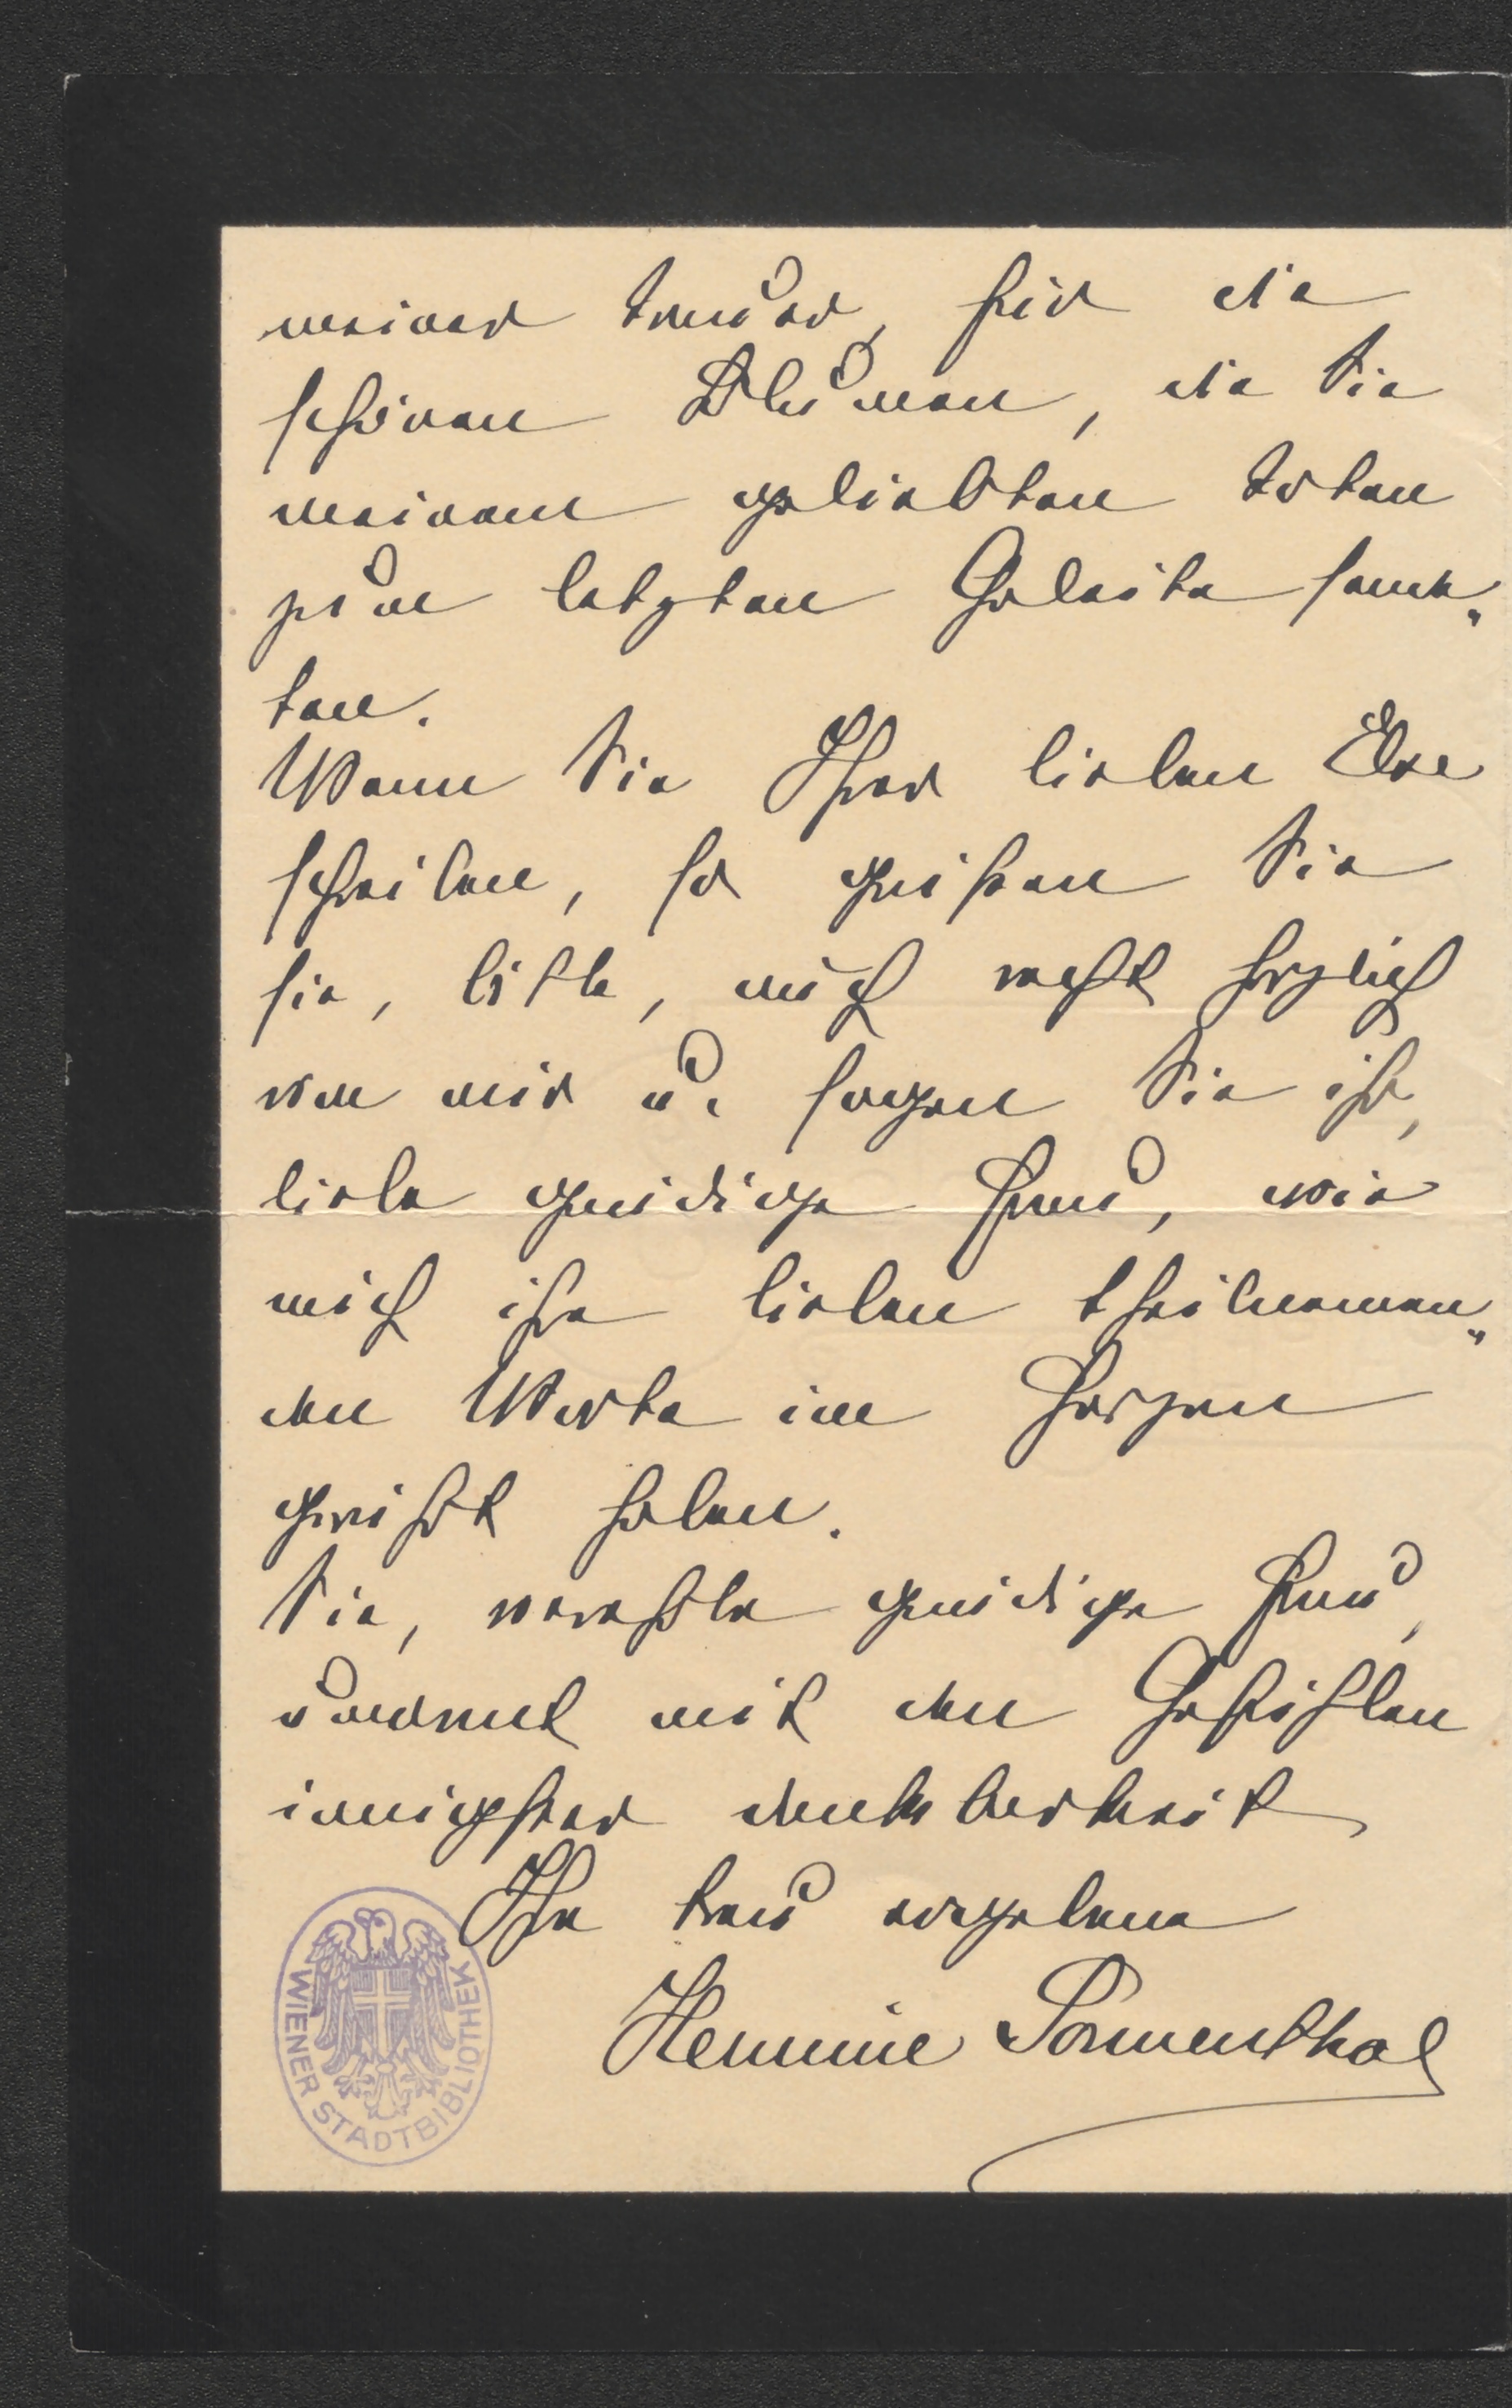 meiner Trauer, für die
schönen Blumen, die Sie
meinem geliebten Toten
zum letzten Geleite sand„
ten.
Wenn Sie Ihrer lieben Else
schreiben, so grüßen Sie
sie, bitte, auch recht herzlich
von mir u. sagen Sie ihr,
liebe gnädige Frau, wie
mich ihre lieben theilnemen„
den Worte im Herzen
gerührt haben.
Sie, verehrte gnädige Frau,
umarmt mit den Gefühlen
innigster Dankbarkeit
Ihre treu ergebene
Hermine Sonnenthal
WIENER STADTBIBLIOTHEK